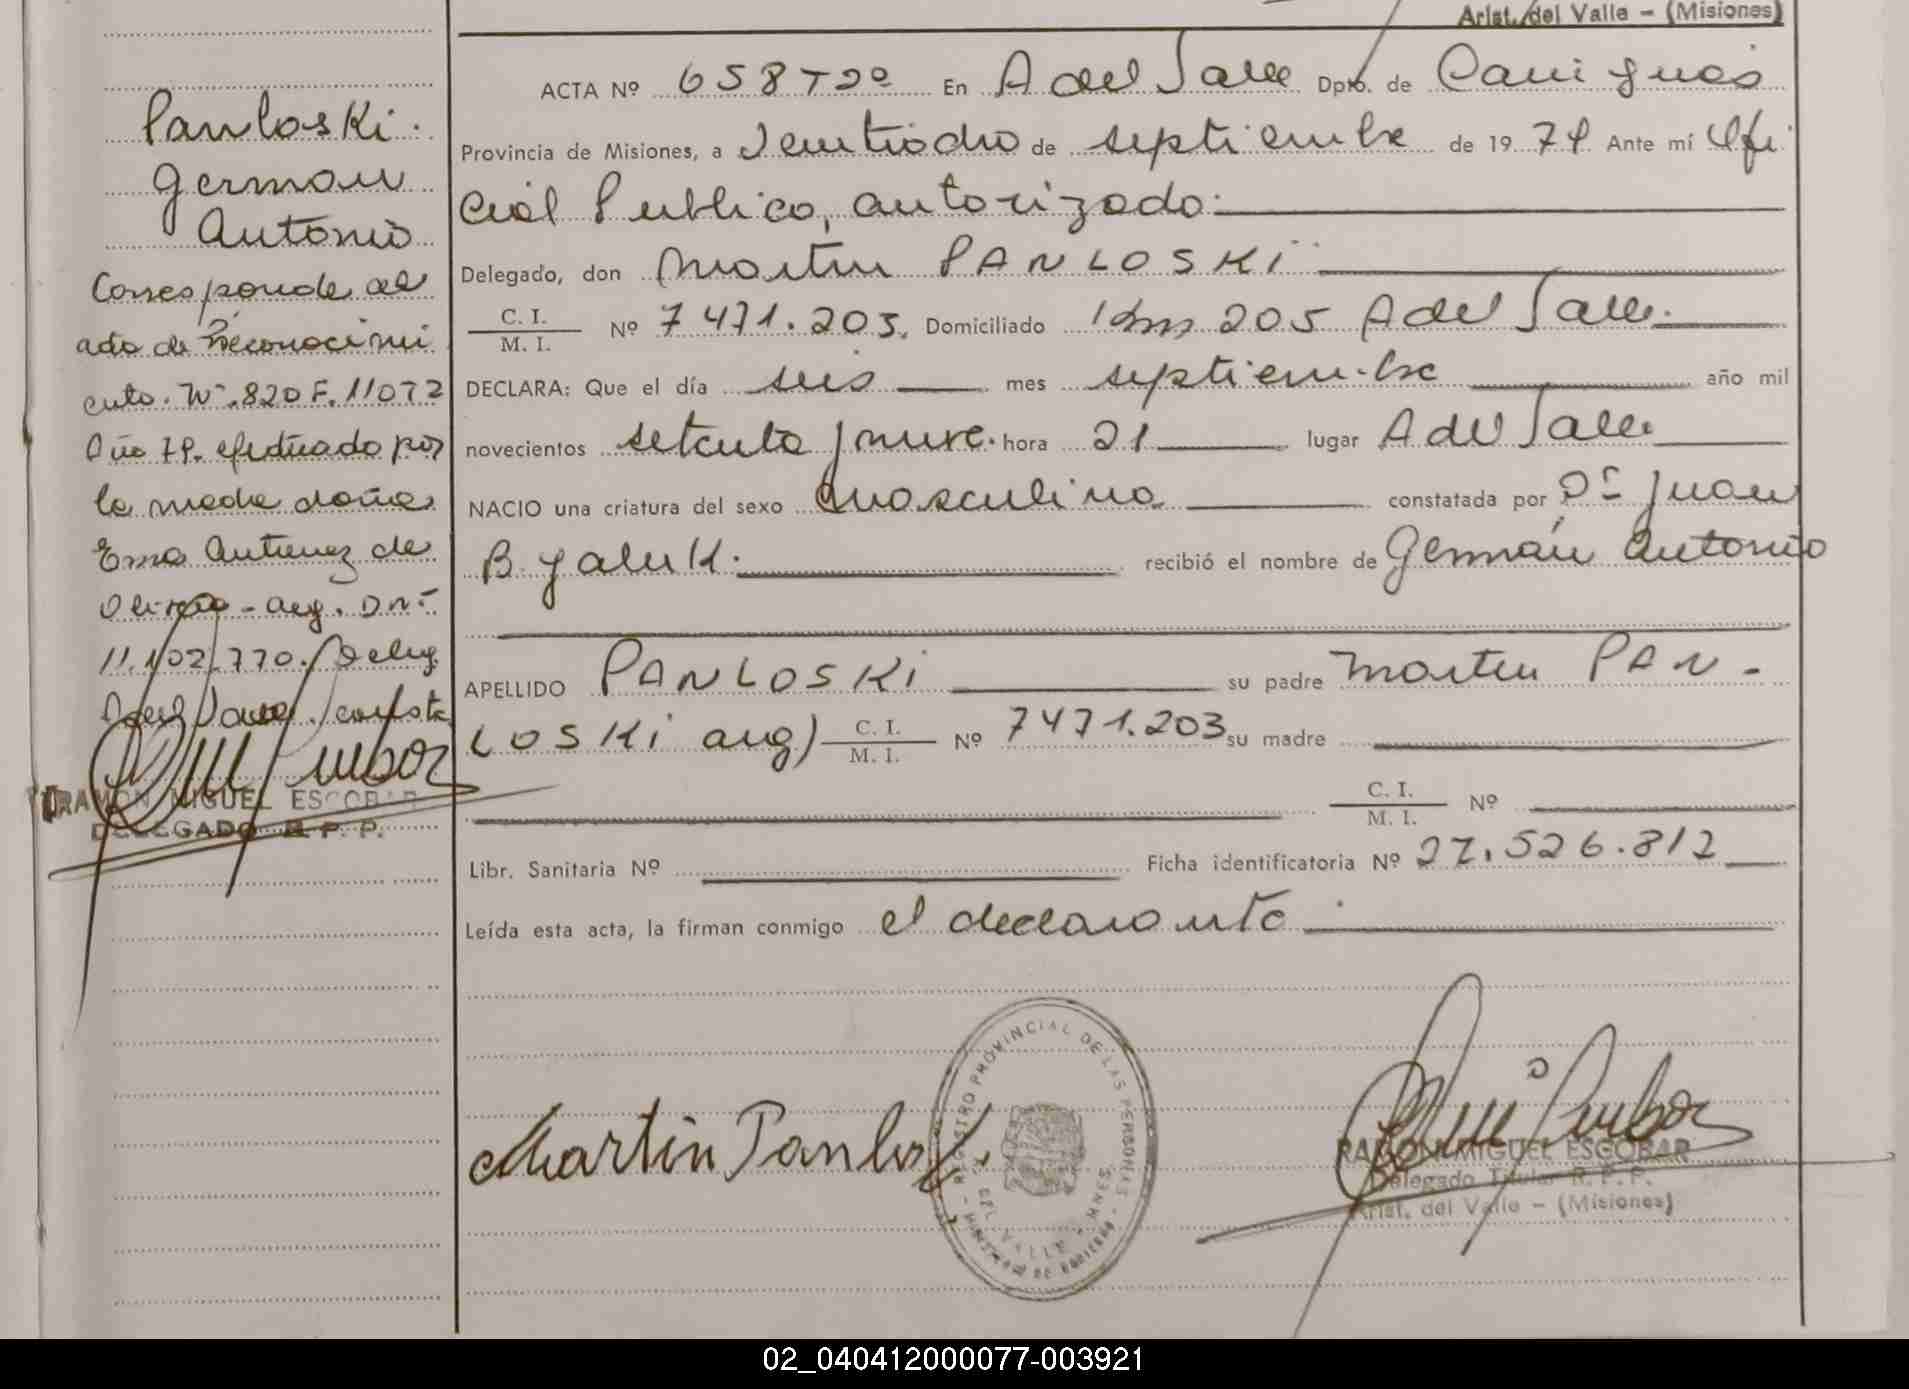 Arist. del Valle - (Misiones)
ACTA Nº 658 Tº 2º En A del Valle Dpto. de Cainguas
Provincia de Misiones, a Veintiocho de septiembre de 19 79 Ante mí Ofi
cial Publico, autorizado:
Delegado, don Martin PANLOSKI
C. I.
M. I.
Nº 7471.203. Domiciliado Km 205 A del Valle.
DECLARA: Que el día seis mes septiembre año mil
novecientos setenta y nueve. hora 21 lugar A del Valle
NACIO una criatura del sexo masculino constatada por Dr Juan
B. yaluk. recibió el nombre de Germán Antonio
APELLIDO PANLOSKI su padre Martin PAN-
LOSKI arg) C. I.
M. I.
Nº 7471.203 su madre
C. I.
M. I.
Nº
Libr. Sanitaria Nº Ficha identificatoria Nº 27.526.812
Leída esta acta, la firman conmigo el declarante
Martin Panlosk
REGISTRO PROVINCIAL DE LAS PERSONAS
MINISTERIO DE GOBIERNO
A. DEL VALLE MNES.
RAMON MIGUEL ESCOBAR
Delegado Titular R. P. P.
Arist. del Valle - (Misiones)
Panloski.
German
Antonio
Corresponde al
acta de Reconocimi
ento. Nº. 820 F. 11072
Año 79. efectuado por
la madre doña
Ema de
Olivera - arg. DNI
11.102.770. Deleg.
A del Valle. consta
RAMON MIGUEL ESCOBAR
DELEGADO R. P. P.
02_040412000077-003921